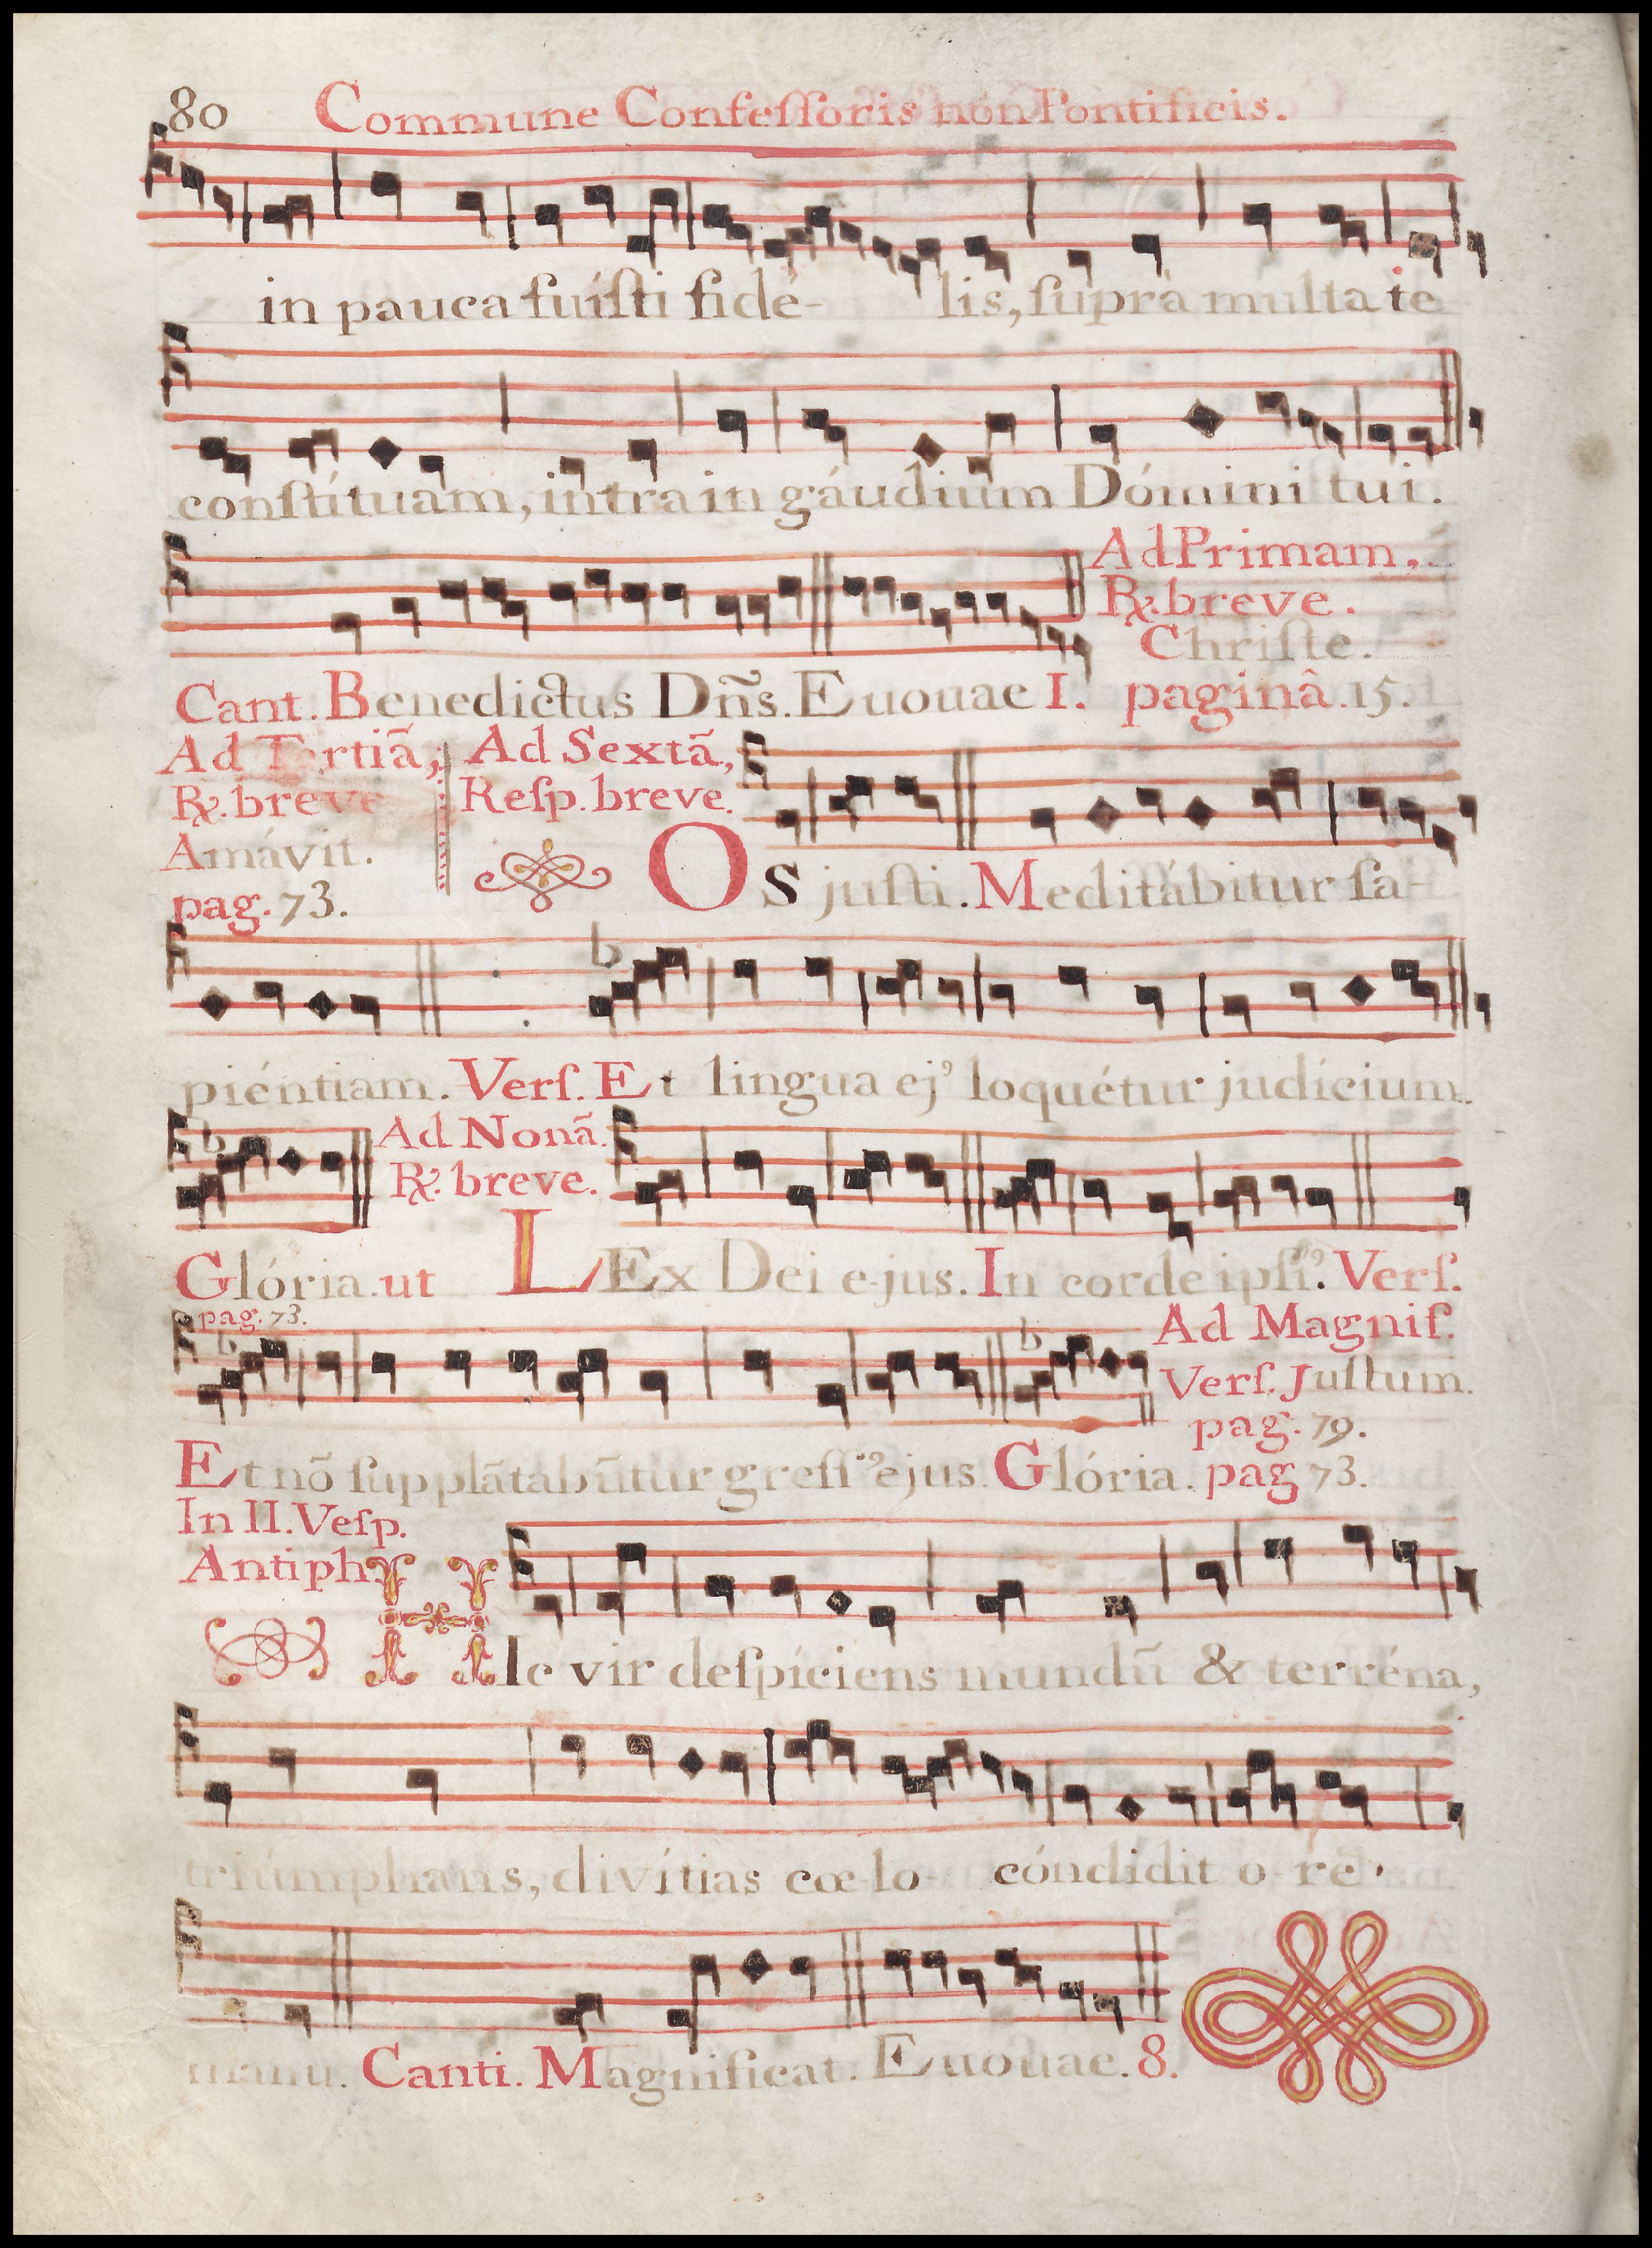 80 Commune Confeſſoris non Pontificis.
in pauca fuíſti fidé- lis, ſuprà multa te
conſtítuam, intra in gáudium Dómini tui.
Ad Primam,
℟. breve.
Chriſte.
Cant. Benedictus Dñs. Euouae I. paginâ. 15.
Ad Tertiã,
℟. breve
Amávit.
pag. 73.
Ad Sextã,
Reſp. breve.
Os juſti. Meditábitur ſa-
piéntiam. Verſ. Et lingua ejꝰ loquétur judícium.
Ad Nonã.
℟. breve.
Glória. ut LEx Dei e-jus. In corde ipſiꝰ. Verſ.
pag. 73.
Ad Magnif.
Verſ. Juſtum.
pag. 79.
Et nõ ſupplãtabũtur greſſꝰ ejus. Glória. pag 73.
In II. Veſp.
Antiph.
HIc vir deſpíciens mundũ & terréna,
triúmphans, divítias cœ-lo cóndidit o-re
manu. Canti. Magnificat. Euouae. 8.